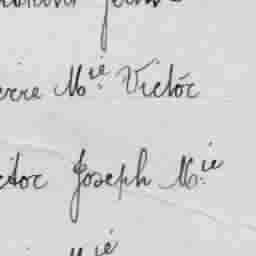 erre M.ie Victor
ctor Joseph M.ie